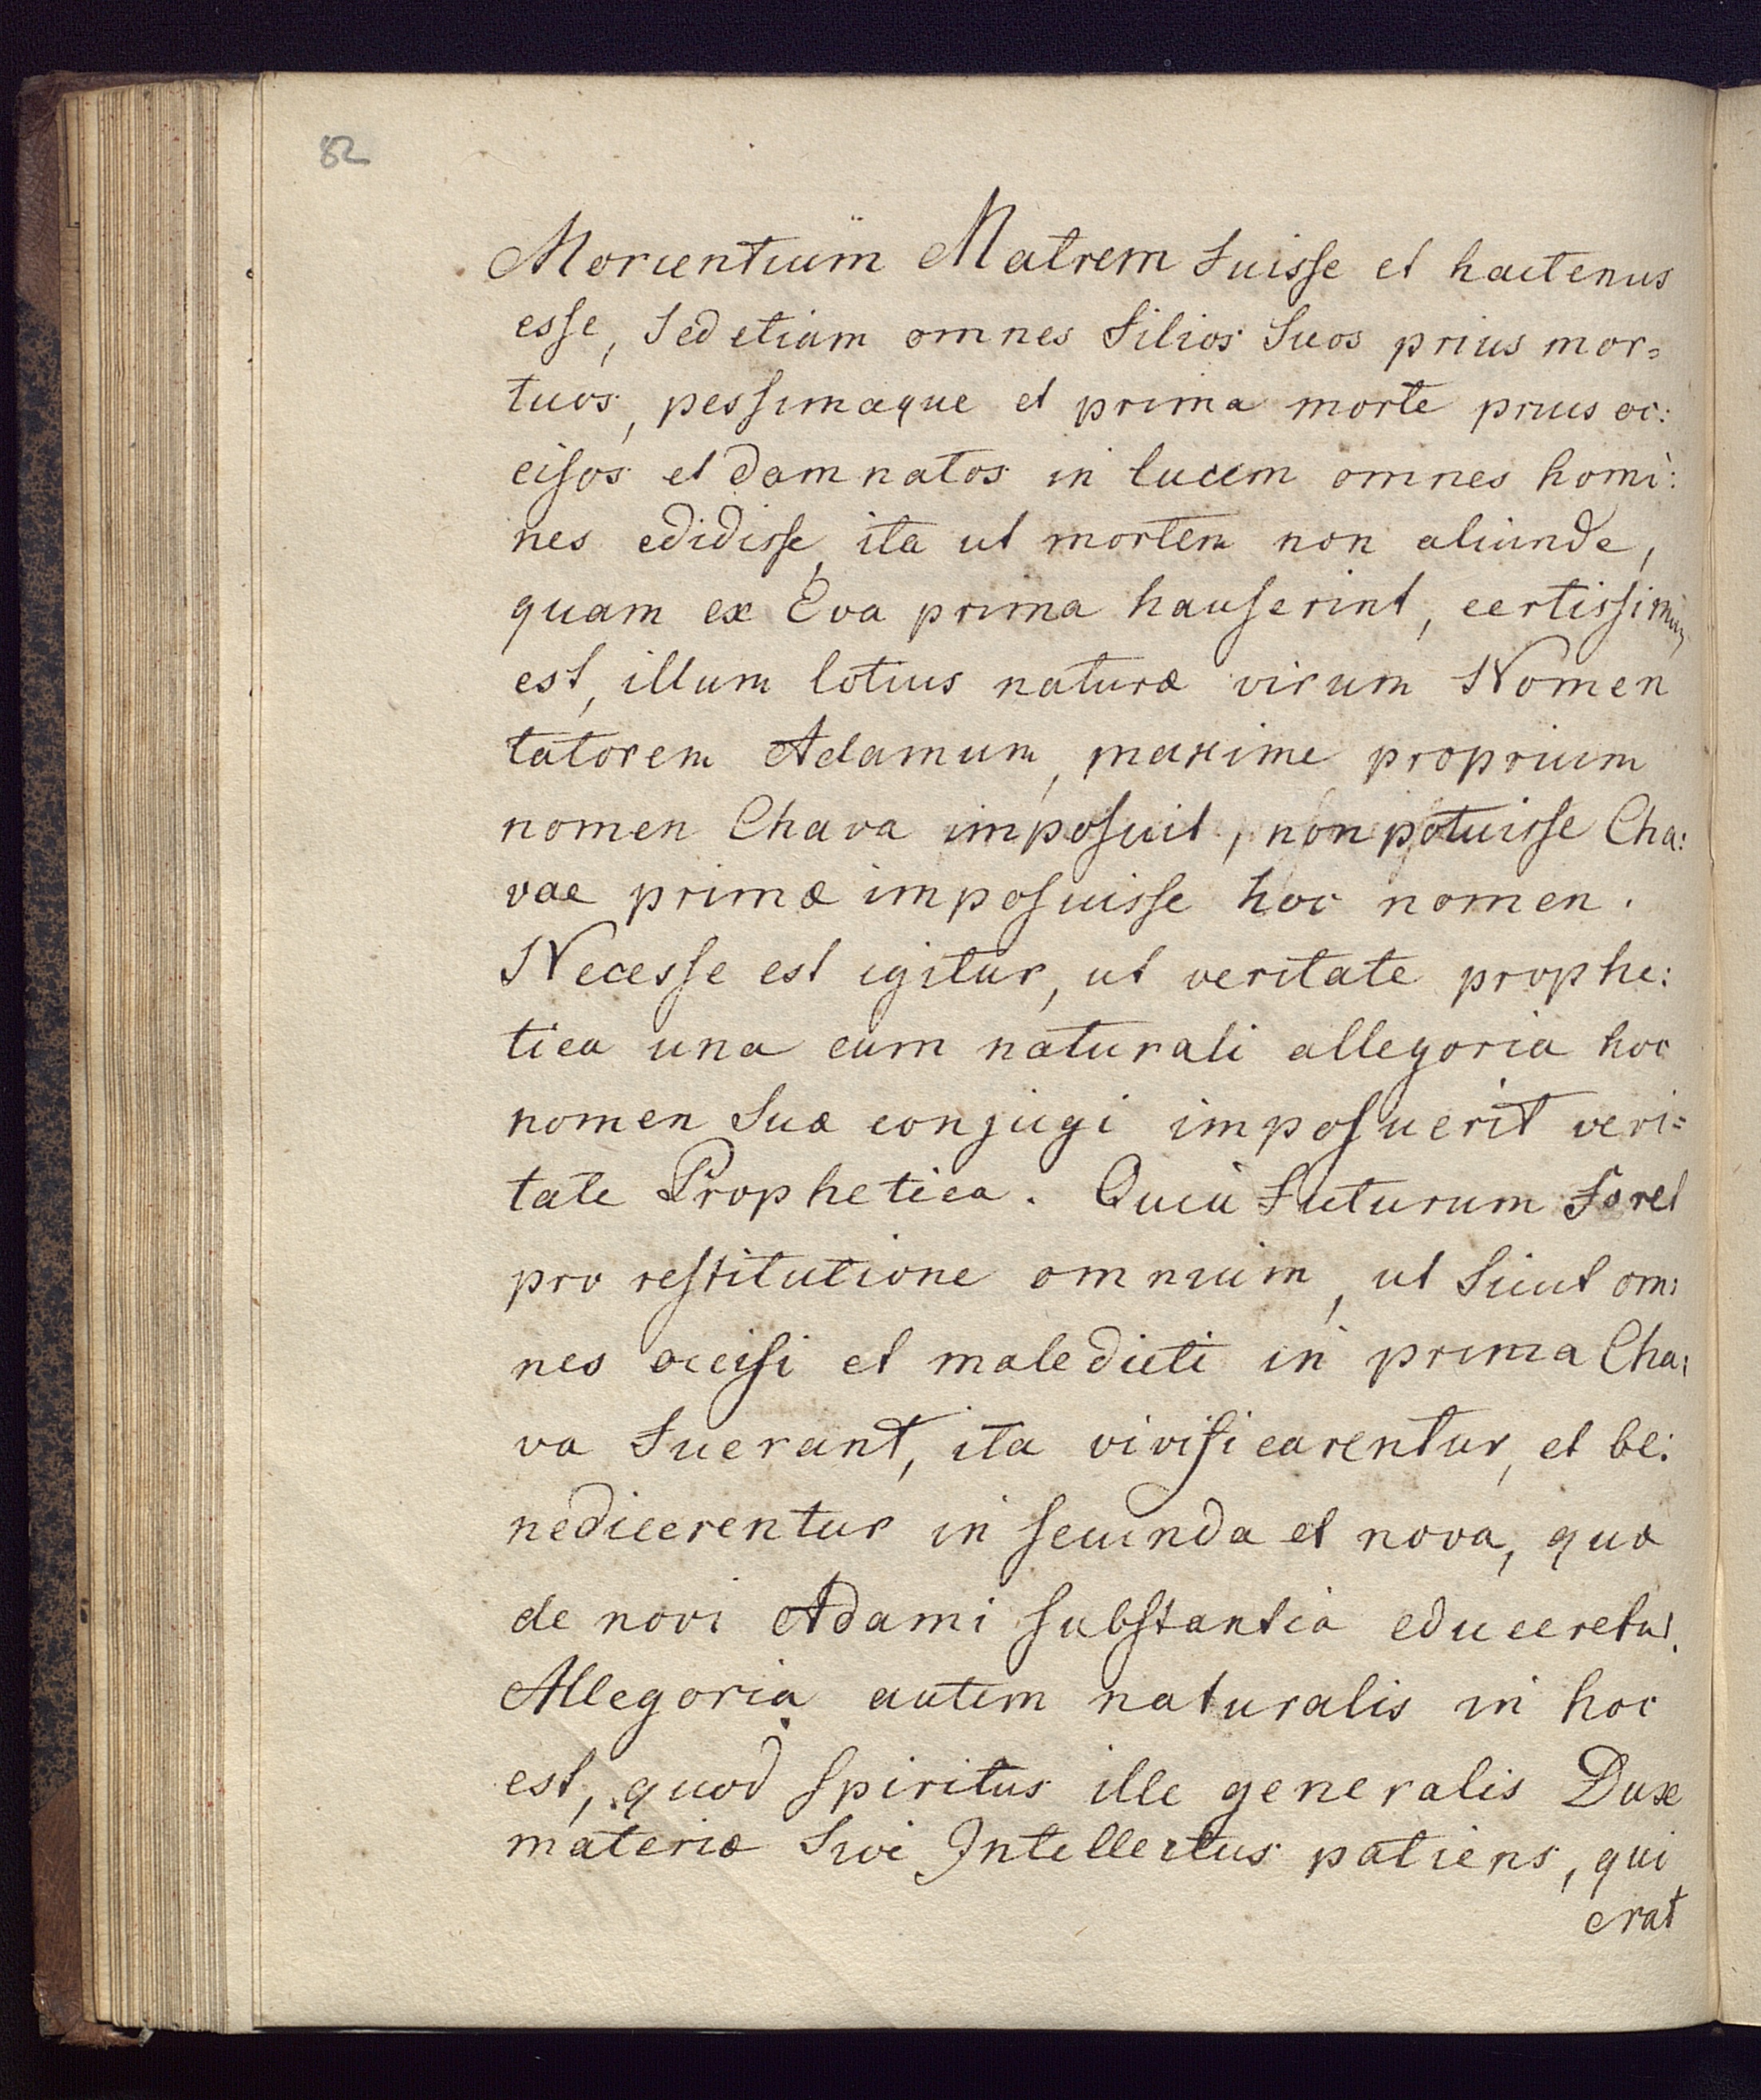 82
Morientium Matrem fuisse et hactenus
esse, sed etiam omnes filios suos prius mor=
tuos, pessimaque et prima morte prius oc:
cisos et damnatos in lucem omnes homi:
nes edidisse, ita ut mortem non aliunde,
quam ex Eva prima hauserint, certissimum
est, illum totius naturæ virum Nomen
tatorem Adamum, maxime proprium
nomen Chava imposuit, non potuisse Cha:
vae primæ imposuisse hoc nomen.
Necesse est igitur, ut veritate prophe:
tica una cum naturali allegoria hoc
nomen suæ conjugi imposuerit veri=
tate Prophetica. Quia futurum foret
pro restitutione omnium, ut sicut om:
nes occisi et maledicti in prima Cha:
va fuerant, ita vivificarentur, et be:
nedicerentur in secunda et nova, quæ
de novi Adami substantia educeretur.
Allegoria autem naturalis in hoc
est, quod spiritus ille generalis Dux
materiæ sive Intellectus patiens, qui
erat